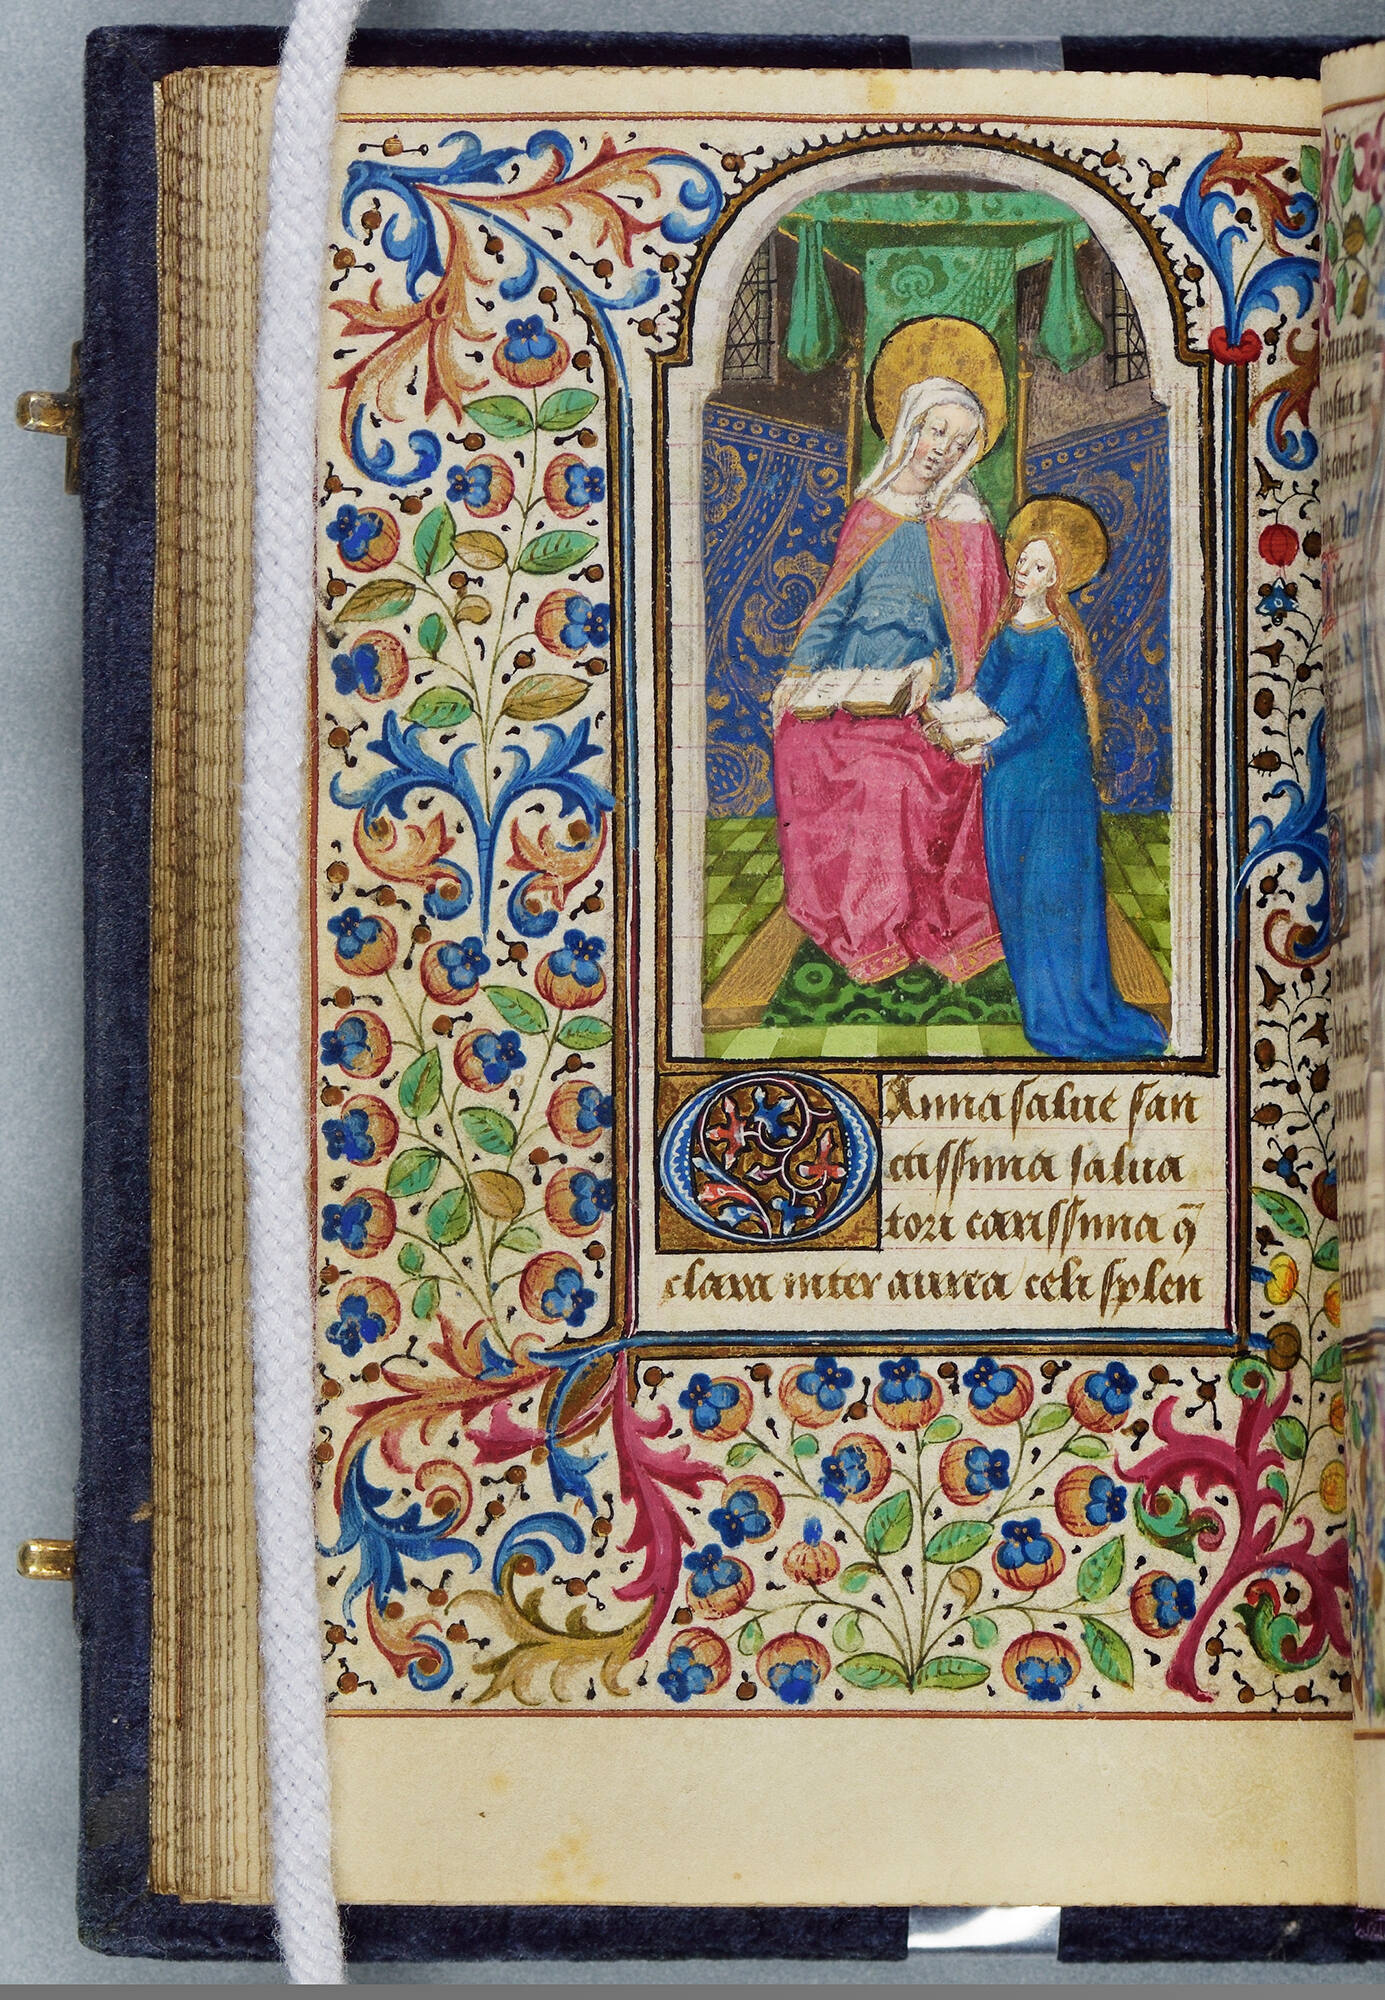 O Anna salue san
ctissima salua
tori carissima q̄
clara inter aurea celi splen